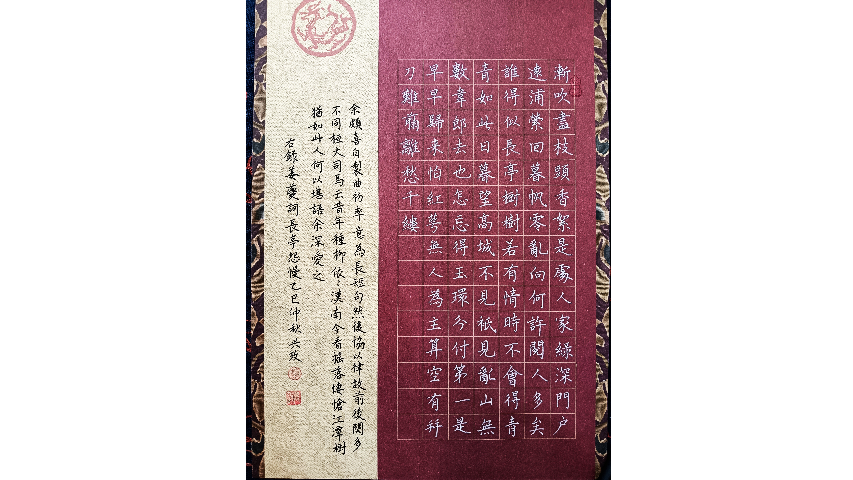 漸吹盡枝頭香絮是處人家綠深門戶
遠浦縈回暮帆零亂向何許閱人多矣
誰得似長亭樹樹若有情時不會得青
青如此日暮望高城不見袛見亂山無
數韋郎去也怎忘得玉環分付第一是
早早歸來怕紅萼無人為主算空有幷
刀難翦離愁千縷
余頗喜自製曲初率意為長短句然後協以律故前後闋多
不同桓大司馬云昔年種柳依依漢南今看搖落悽愴江潭樹
猶如此人何以堪語余深愛之
右錄姜夔詞長亭怨慢乙巳仲秋